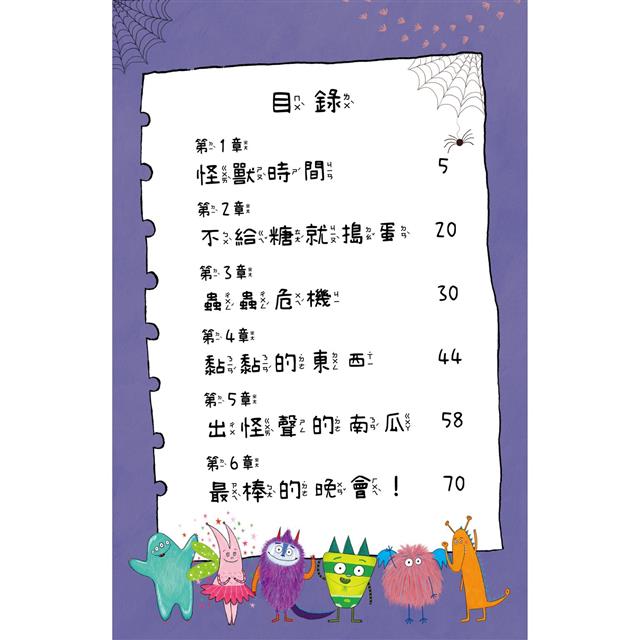 目錄
第1章
怪獸時間 5
第2章
不給糖就搗蛋 20
第3章
蟲蟲危機 30
第4章
黏黏的東西 44
第5章
出怪聲的南瓜 58
第6章
最棒的晚會！ 70